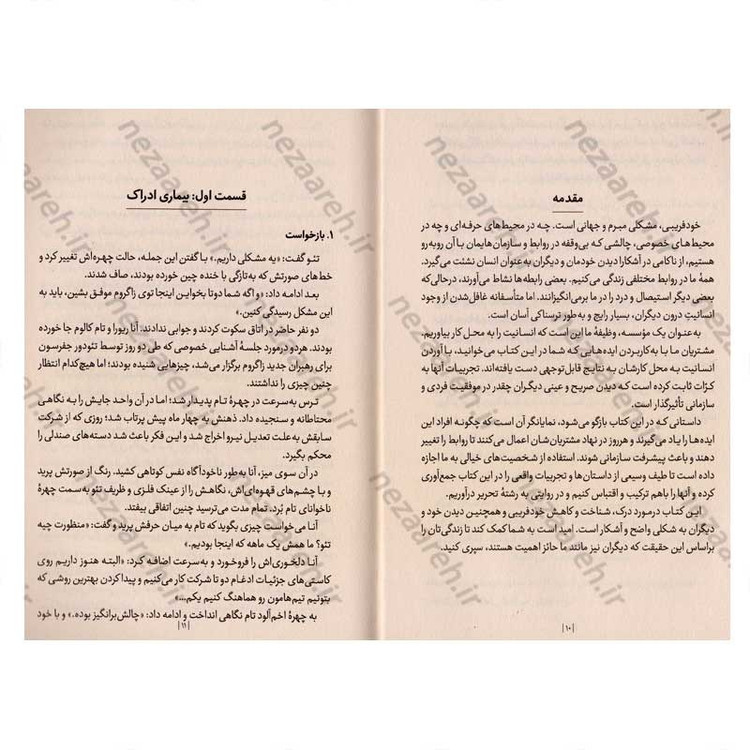 مقدمه
خودفریبی، مشکلی مبرم و جهانی است. چـه در محیط‌های حرفه‌ای و چه در
محیط‌هـای خصوصی، چالشی کـه بی‌وقفه در روابط و سازمان‌هایمان بـا آن روبه‌رو
هستیم، از ناکامی در آشکارا دیدن خودمان و دیگران به عنوان انسان نشئت می‌گیرد.
همهٔ ما در روابط مختلفی زندگی می‌کنیم. بعضی رابطه‌ها نشاط می‌آورند، درحالی‌که
بعضی دیگر استیصال و درد را در ما برمی‌انگیزانند. اما متأسفانه غافل‌شدن از وجود
انسانیتِ درون دیگران، بسیار رایج و به‌طور ترسناکی آسان است.
به‌عنوان یک مؤسسه، وظیفهٔ ما این است که انسانیت را به محل کار بیاوریم.
مشتریان مـا بـا به‌کاربـردن ایده‌هایـی که شما در این کتاب می‌خوانید، با آوردن
انسانیت به محل کارشان به نتایج قابل‌توجهی دست یافته‌اند. تجربیات آنها به
کرّات ثابت کرده است کـه دیـدن صریح و عینی دیگران چقدر در موفقیت فردی و
سازمانی تأثیرگذار است.
داستانی کـه در این کتاب بازگو می‌شود، نمایانگر آن است که چگونه افراد این
ایده‌هـا را یاد می‌گیرند و هرروز در نهاد مشتریان‌شان اعمال می‌کنند تا روابط را تغییر
دهند و باعث پیشرفت سازمانی شوند. استفاده از شخصیت‌های خیالی به ما اجازه
داده است تا طیف وسیعی از داستان‌ها و تجربیات واقعی را در این کتاب جمع‌آوری
کرده و آنهـا را باهم ترکیب و اقتباس کنیم و در روایتی به رشتهٔ تحریر درآوریم.
این کتاب درمورد درک، شناخت و کاهش خودفریبی و همچنین دیدن خود و
دیگران به شکلی واضح و آشکار است. امید است به شما کمک کند تا زندگی‌تان را
براساس این حقیقت که دیگران نیز مانند ما حائز اهمیت هستند، سپری کنید.
|۱۰|
قسمت اول: بیماری ادراک
۱. بازخواست
تئو گفت: «یه مشکلی داریم.» با گفتن این جمله، حالت چهره‌اش تغییر کرد و
خط‌های صورتش که به‌تازگی با خنده چین خورده بودند، صاف شدند.
بعد ادامه داد: «و اگه شما دوتا بخواین اینجا توی زاگروم موفق بشین، باید به
این مشکل رسیدگی کنین.»
دو نفر حاضر در اتاق سکوت کردند و جوابی ندادند. آنا ریورا و تام کالوم جا خورده
بودند. هردو درمورد جلسهٔ آشنایی خصوصی که طی دو روز توسط تئودور جفرسون
برای رهبران جدید زاگروم برگزار می‌شد، چیزهایی شنیده بودند؛ اما هیچ‌کدام انتظار
چنین چیزی را نداشتند.
ترس به‌سرعت در چهرهٔ تام پدیدار شد؛ امـا در آن واحد جایش را به نگاهی
محتاطانه و سنجیده داد. ذهنش به چهار ماه پیش پرتاب شد؛ روزی که از شرکت
سابقش به‌علت تعدیل نیرو اخراج شد و این فکر باعث شد دسته‌های صندلی را
محکم بگیرد.
در آن سوی میز، آنا به‌طور ناخودآگاه نفس کوتاهی کشید. رنگ از صورتش پرید
و بـا چشم‌های قهوه‌ای‌اش، نگاهـش را از عینک فلـزی و ظریف تئو به‌سمت چهرهٔ
ناخوانای تام بُرد. تمام مدت می‌ترسید چنین اتفاقی بیفتد.
آنـا می‌خواست چیزی بگوید که تام به میان حرفش پرید و گفت: «منظورت چیه
تئو؟ ما همش یک ماهه که اینجا بودیم.»
آنـا دلخوری‌اش را فروخورد و به‌سرعت اضافه کرد: «البتـه هنوز داریـم روی
کاستی‌های جزئیات ادغام دو تا شرکت کار می‌کنیم و پیدا کردن بهترین روشی که
بتونیم تیم‌هامون رو هماهنگ کنیم یکم...»
به چهرهٔ اخم‌آلود تام نگاهی انداخت و ادامه داد: «چالش‌برانگیز بوده.» و با خود
|۱۱|
nezaareh.ir